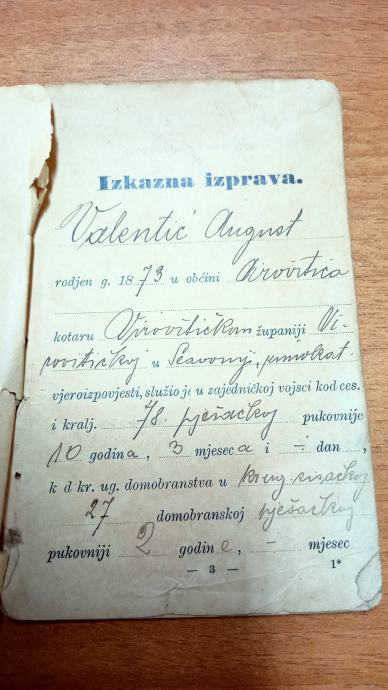 Izkazna izprava.
Valentić August
rodjen g. 1873 u obćini Virovitica
kotaru Virovitičkom županiji Vi-
rovitičkoj u Slavoniji, rimokat.
vjeroizpovjesti, služio je u zajedničkoj vojsci kod ces.
i kralj. 78. pješačkoj pukovnije
10 godina, 3 mjeseca i – dan,
k d kr. ug. domobranstva u
27 domobranskoj pješačkoj
pukovniji 2 godine, – mjesec
— 3 — 1*